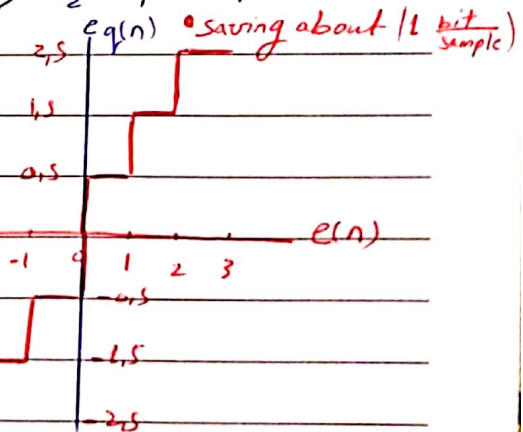 eq(n) • saving about (1 bit/sample)
2,5
1,5
0,5
e(n)
-1 0 1 2 3
-0,5
-1,5
-2,5